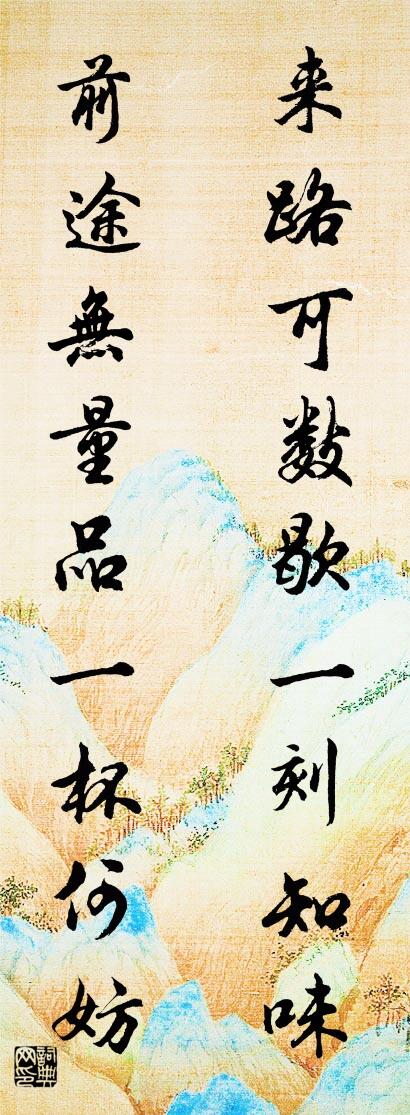 来路可数歇一刻知味
前途無量品一杯何妨
詞典網印